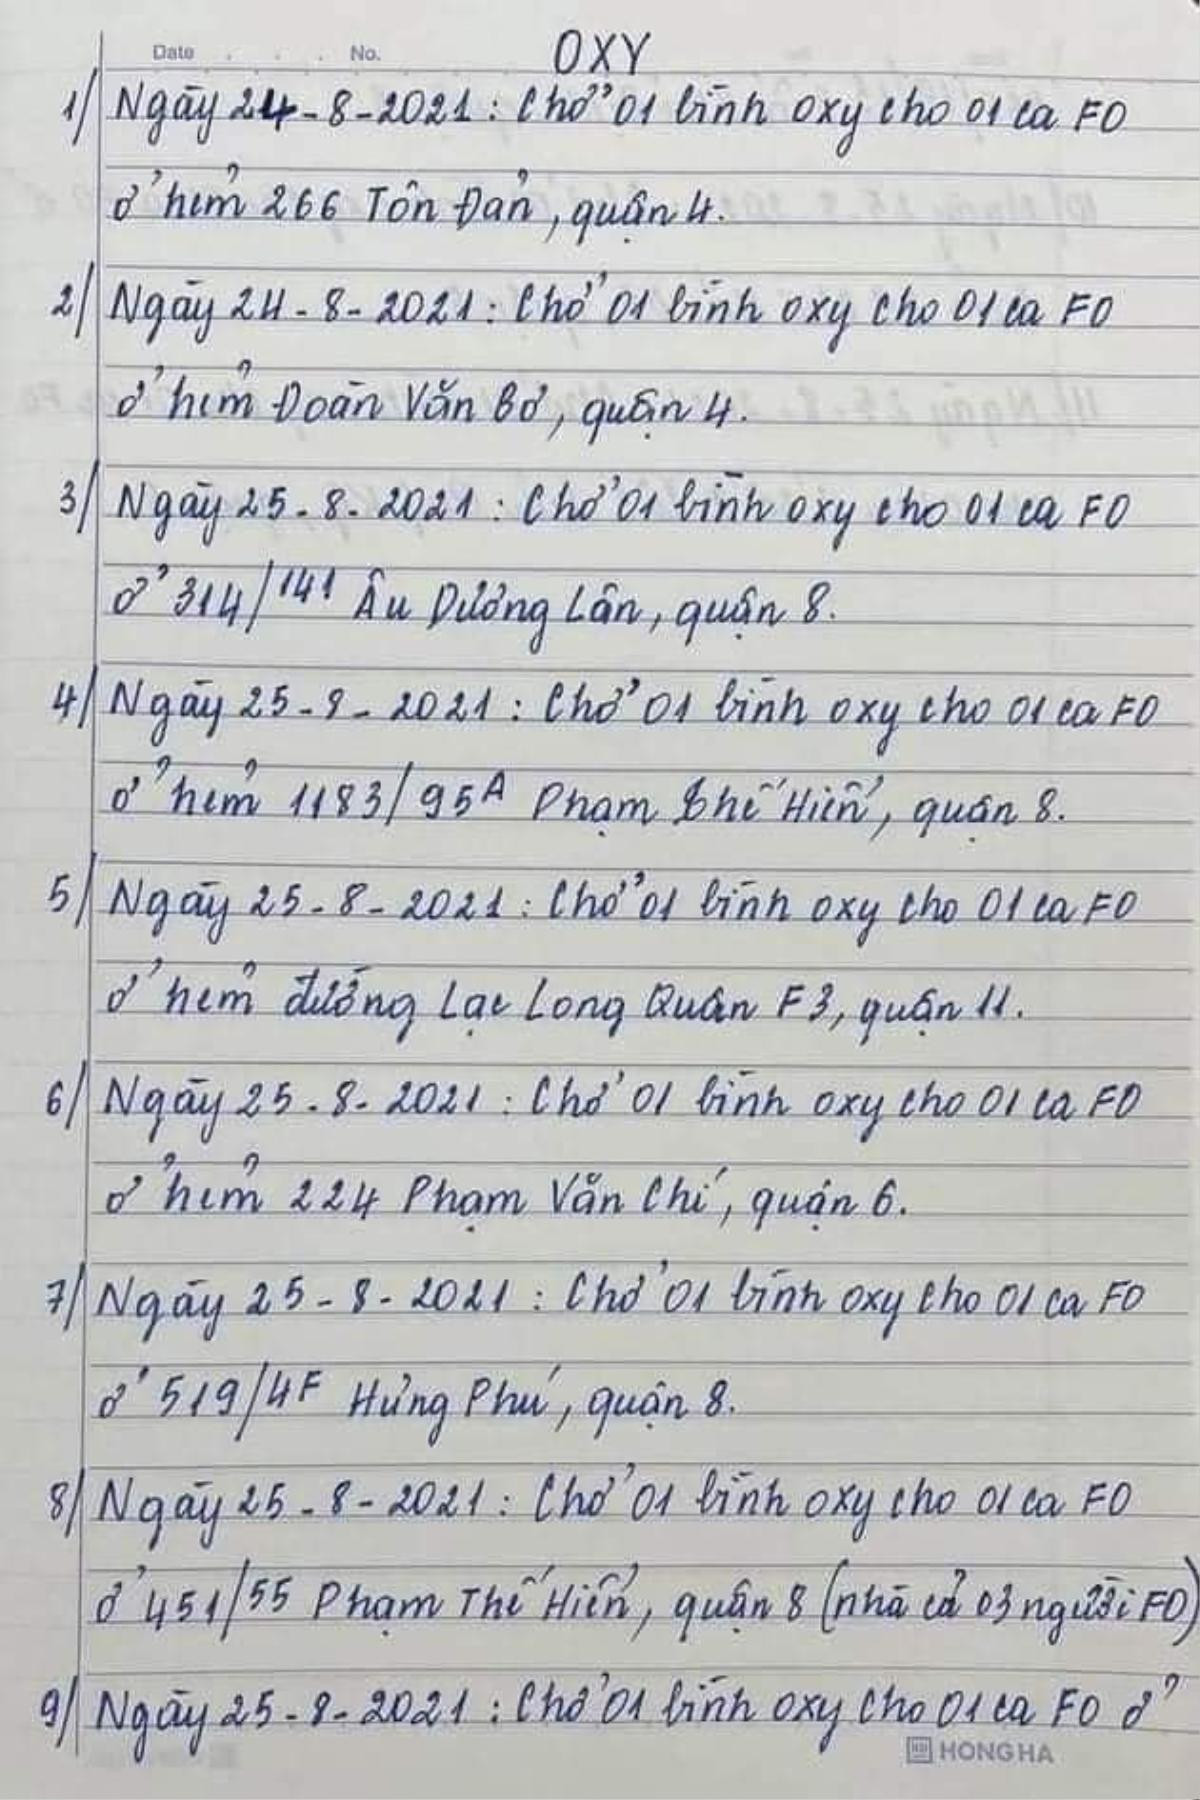 Date . . . . No.
OXY
1/ Ngày 24-8-2021: Chở 01 bình oxy cho 01 ca F0
ở hẻm 266 Tôn Đản, quận 4.
2/ Ngày 24-8-2021: Chở 01 bình oxy cho 01 ca F0
ở hẻm Đoàn Văn Bơ, quận 4.
3/ Ngày 25-8-2021: Chở 01 bình oxy cho 01 ca F0
ở 314/141 Âu Dương Lân, quận 8.
4/ Ngày 25-8-2021: Chở 01 bình oxy cho 01 ca F0
ở hẻm 1183/95A Phạm Thế Hiển, quận 8.
5/ Ngày 25-8-2021: Chở 01 bình oxy cho 01 ca F0
ở hẻm đường Lạc Long Quân F3, quận 11.
6/ Ngày 25-8-2021: Chở 01 bình oxy cho 01 ca F0
ở hẻm 224 Phạm Văn Chí, quận 6.
7/ Ngày 25-8-2021: Chở 01 bình oxy cho 01 ca F0
ở 519/4F Hưng Phú, quận 8.
8/ Ngày 25-8-2021: Chở 01 bình oxy cho 01 ca F0
ở 451/55 Phạm Thế Hiển, quận 8 (nhà cả 03 người F0)
9/ Ngày 25-8-2021: Chở 01 bình oxy cho 01 ca F0 ở
HONG HA